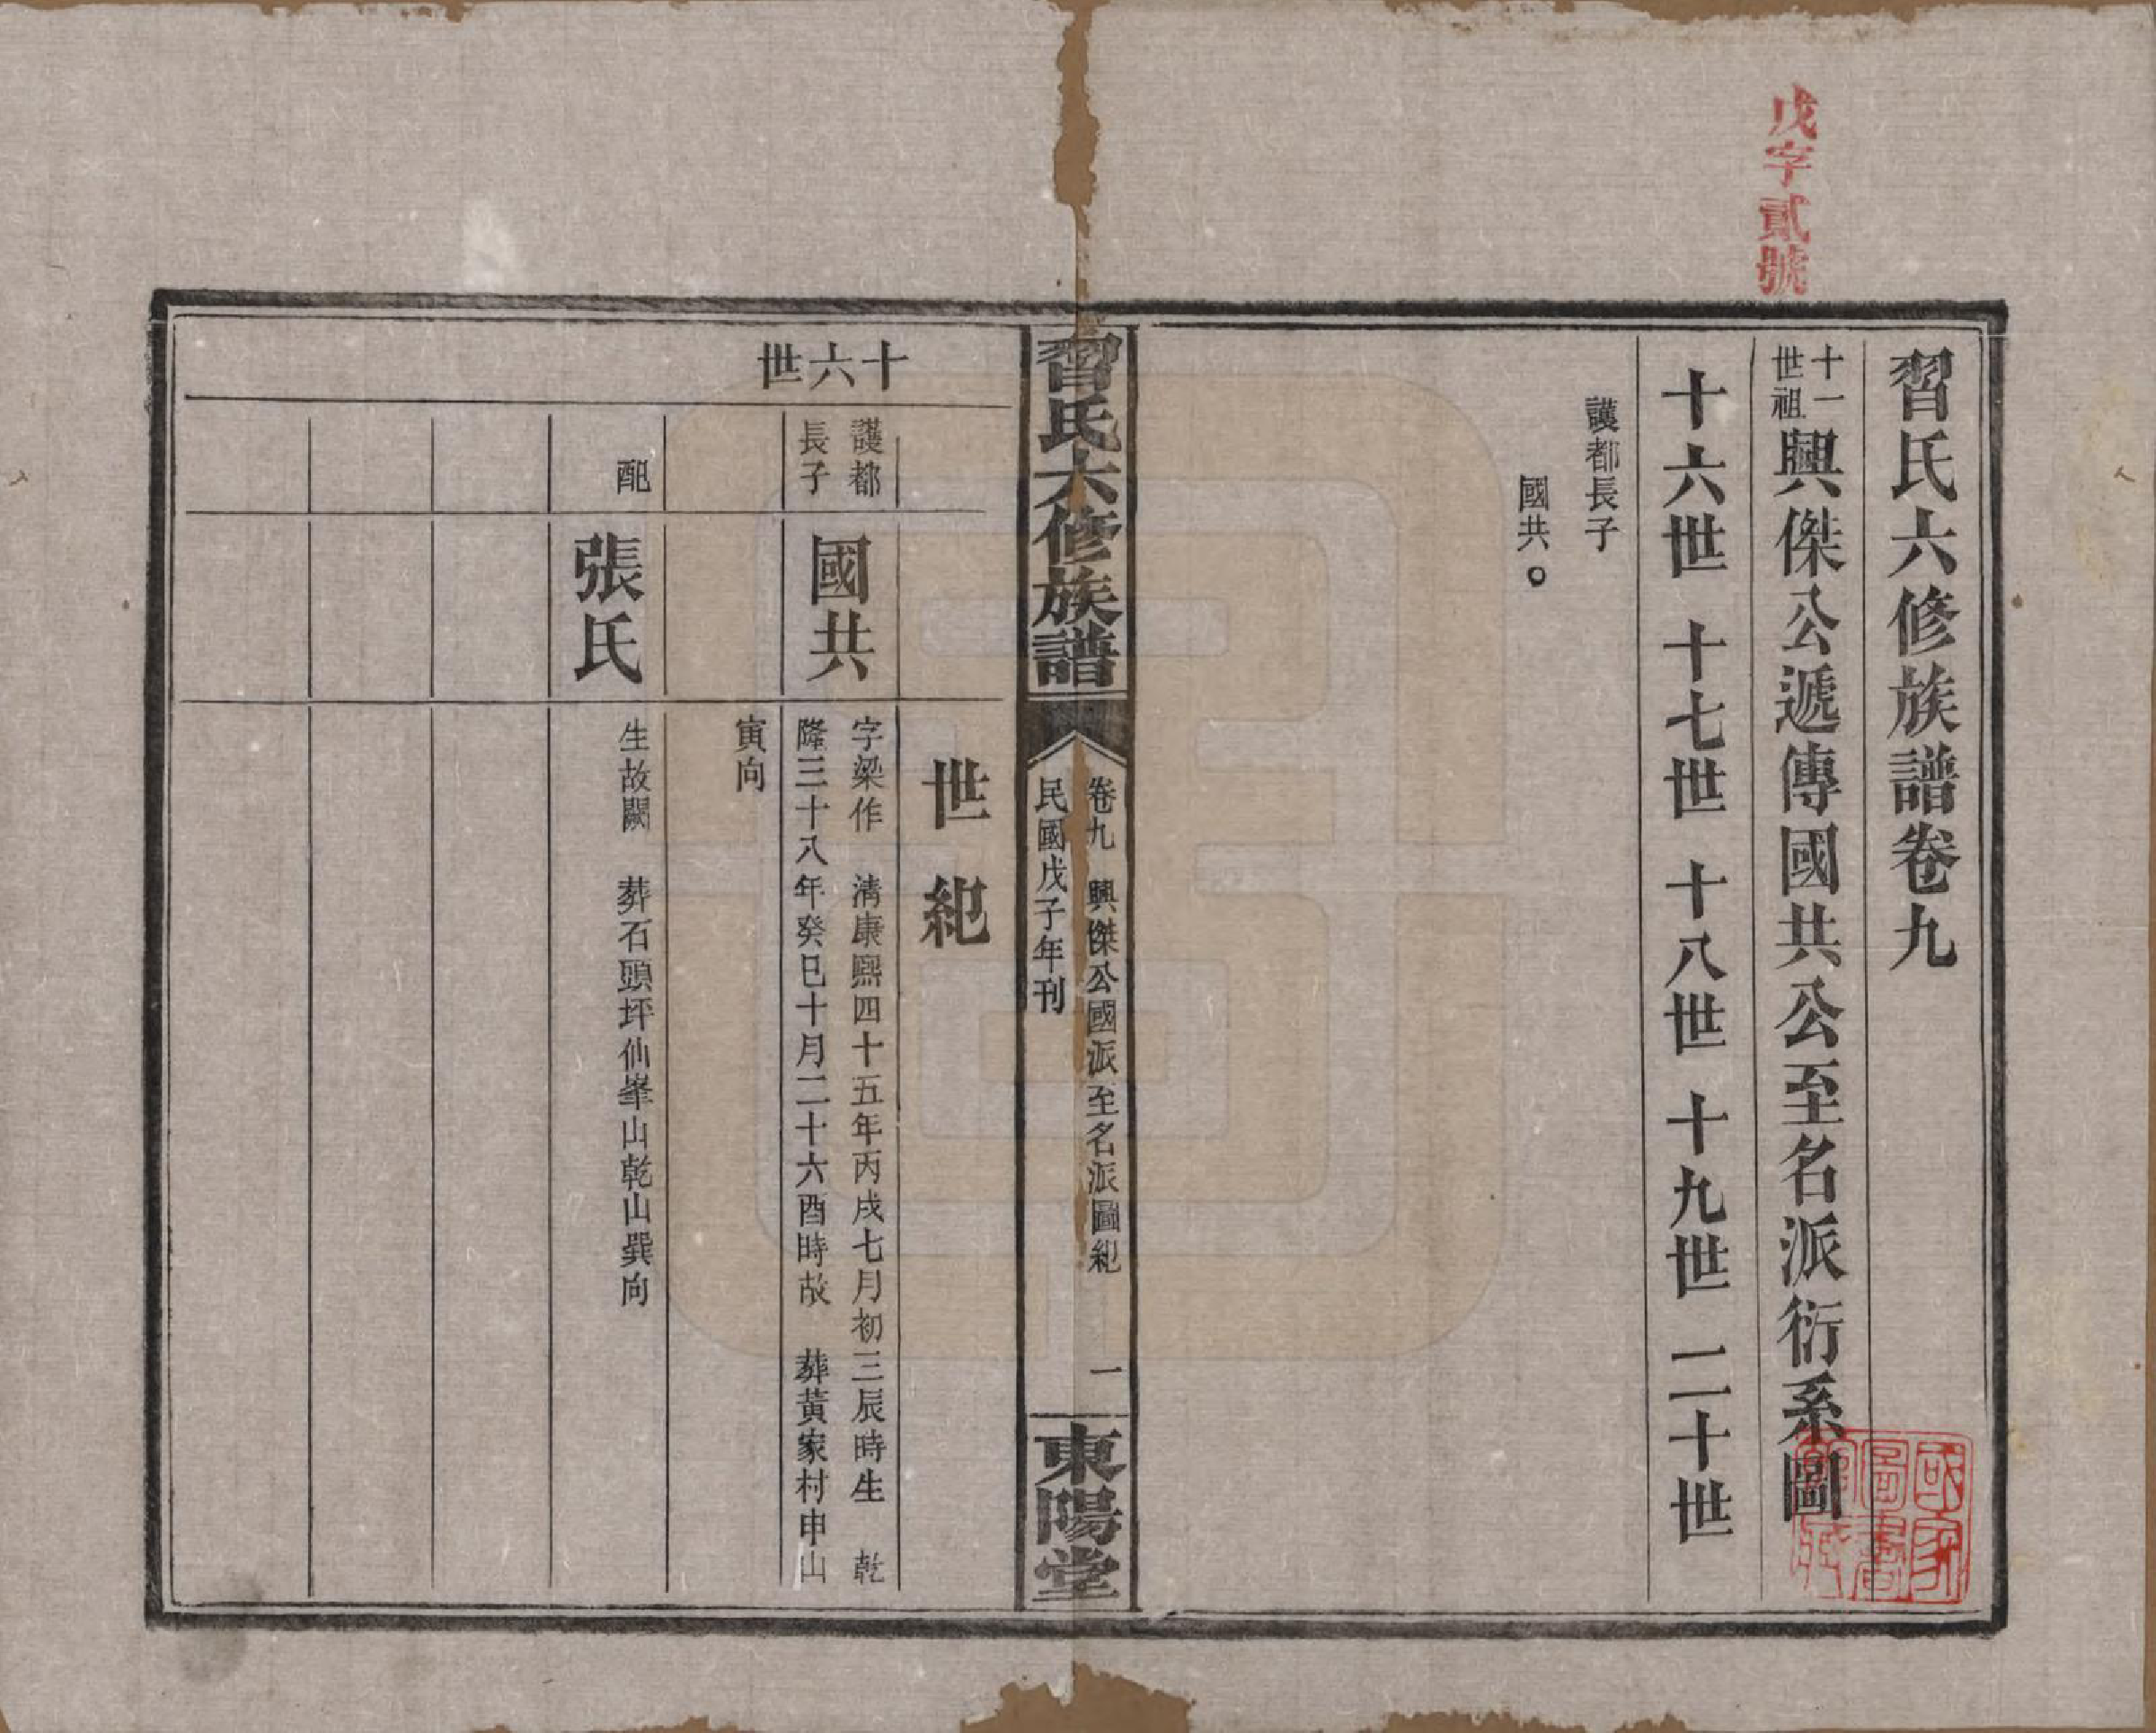 戊字貳號
習氏六修族譜卷九
十一世祖興傑公遞傳國共公至名派衍系圖
十六世 十七世 十八世 十九世 二十世
護都長子
國共。
習氏六修族譜
卷九 興傑公國派至名派圖紀 一
民國戊子年刊
東陽堂
十六世
世紀
護都長子
國共
字梁作 清康熙四十五年丙戌七月初三辰時生 乾
隆三十八年癸巳十月二十六酉時故 葬黃家村申山
寅向
配
張氏
生故闕 葬石頭坪仙峯山乾山巽向
國家圖書館藏